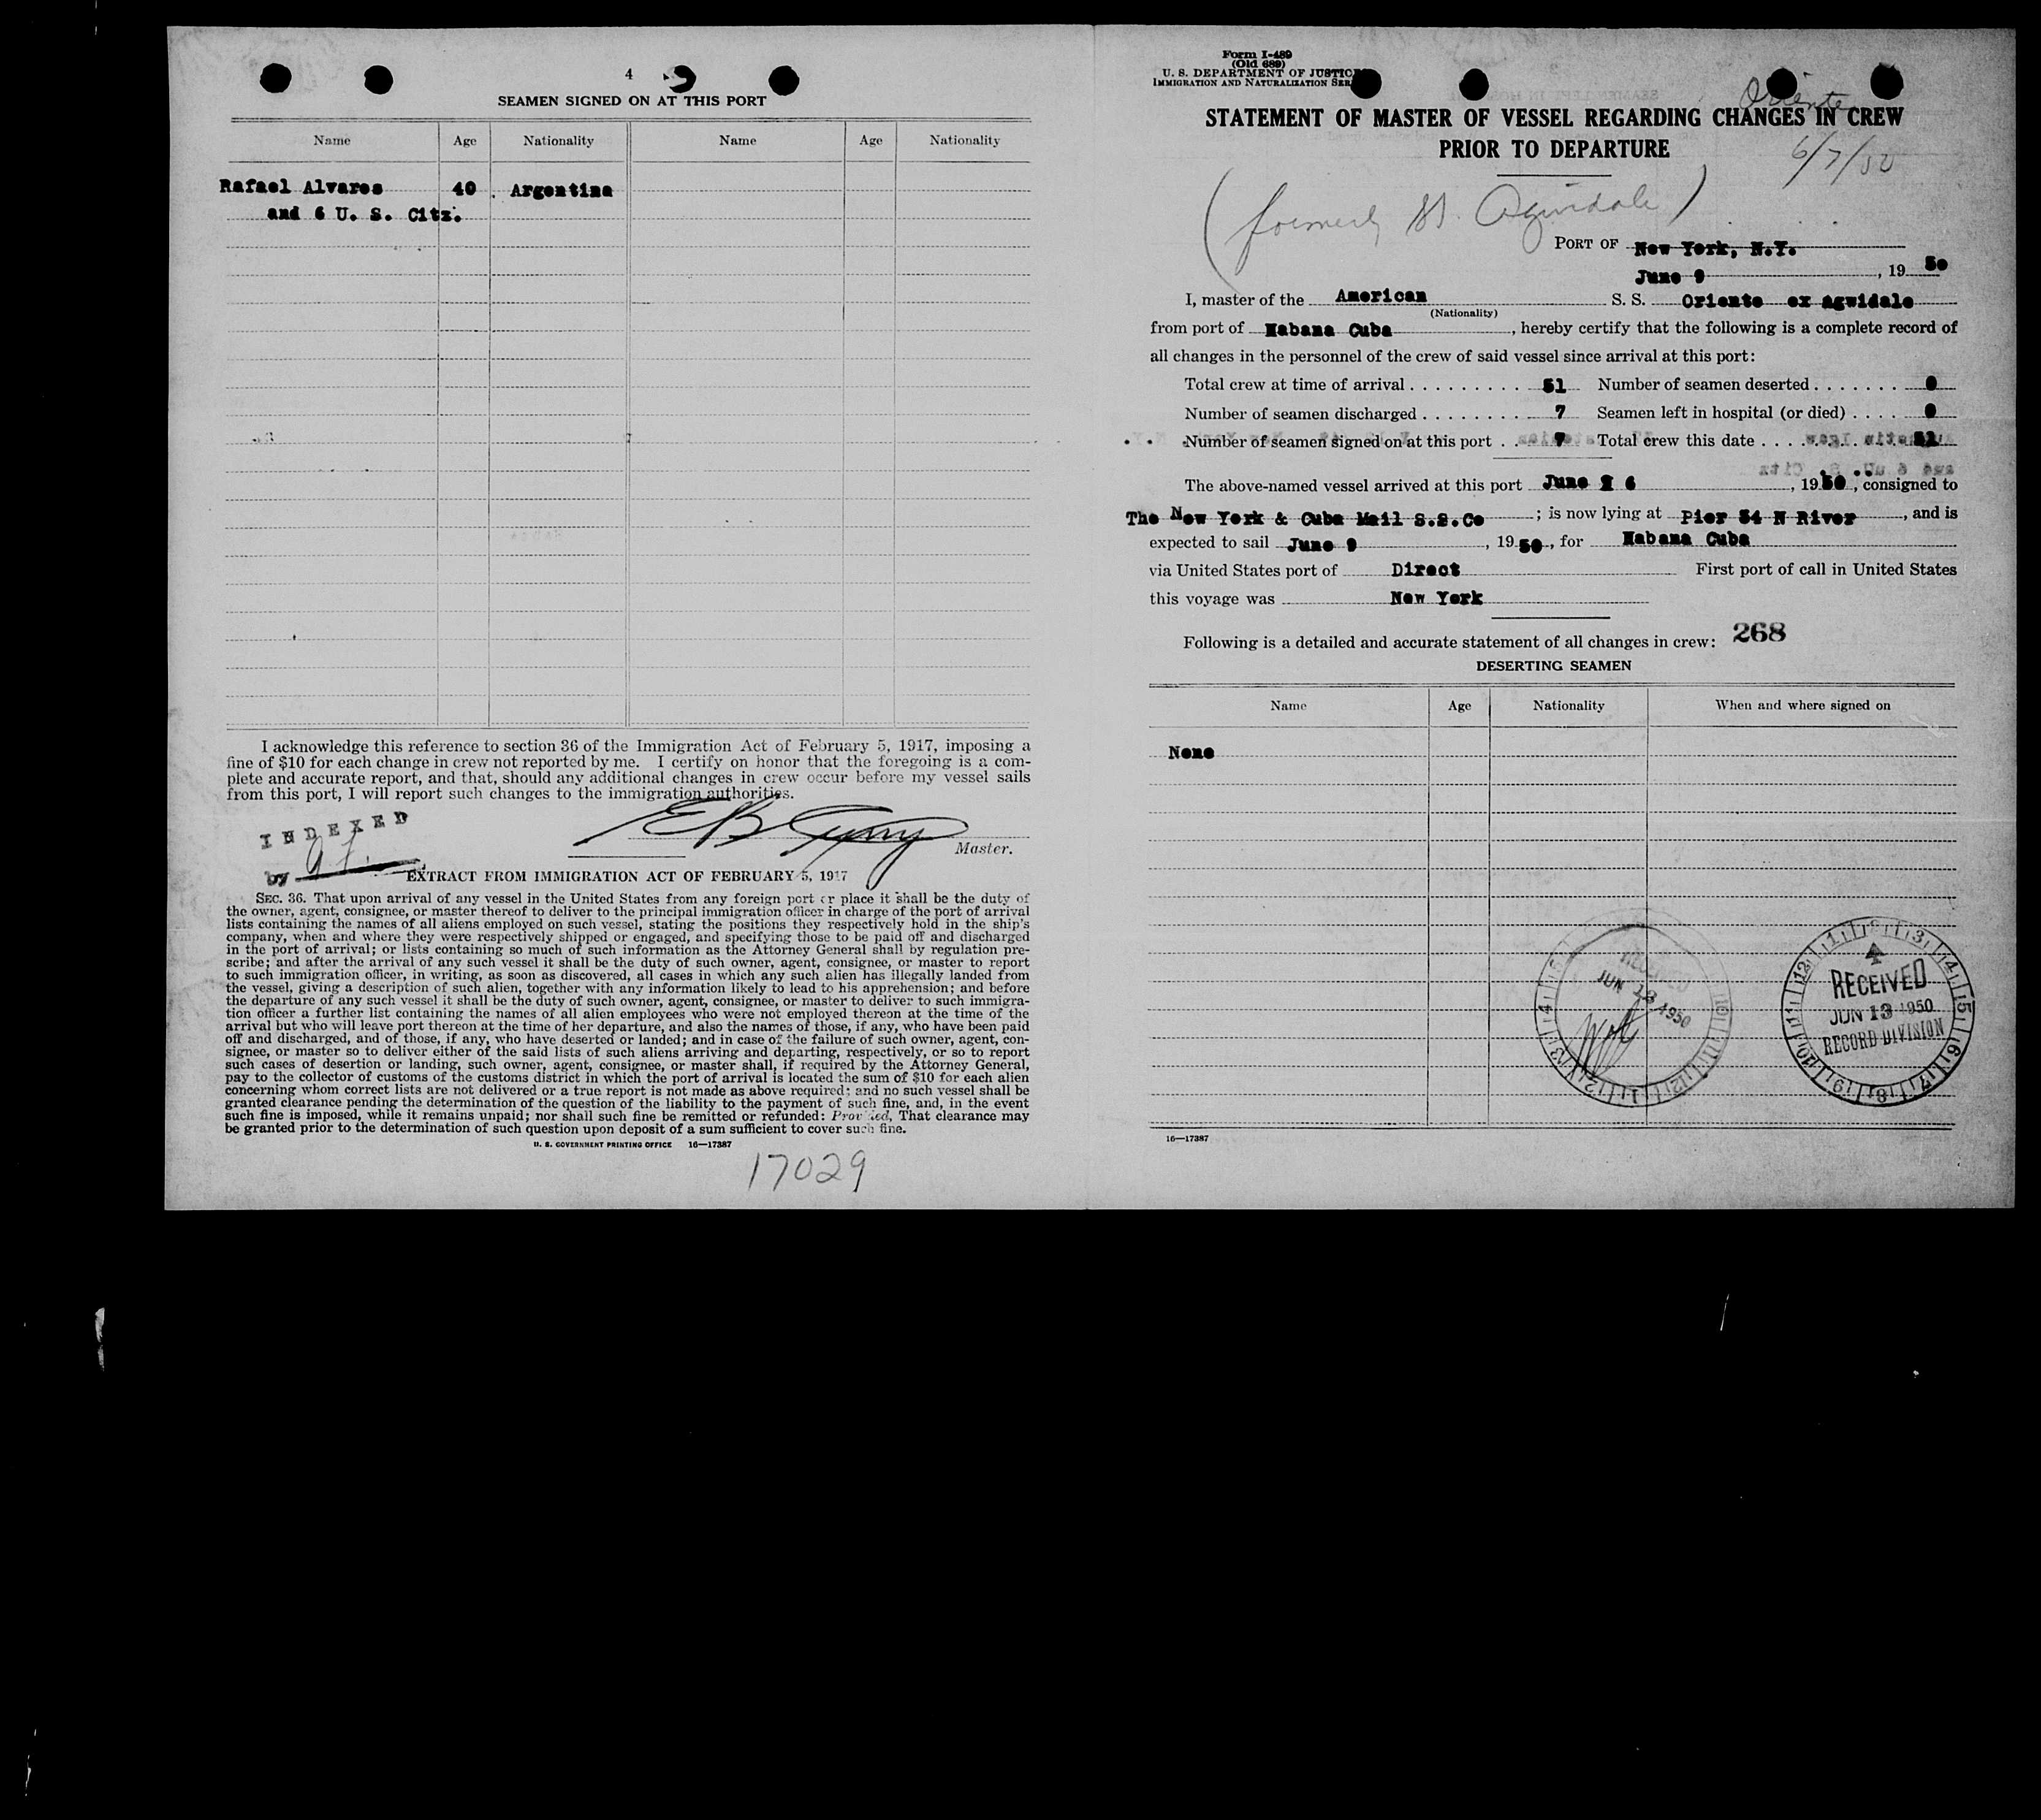 4
SEAMEN SIGNED ON AT THIS PORT
Name Age Nationality Name Age Nationality
Rafael Alvares 40 Argentina
and 6 U. S. Citz.
I acknowledge this reference to section 36 of the Immigration Act of February 5, 1917, imposing a
fine of $10 for each change in crew not reported by me. I certify on honor that the foregoing is a com-
plete and accurate report, and that, should any additional changes in crew occur before my vessel sails
from this port, I will report such changes to the immigration authorities.
INDEXED
by
Master.
EXTRACT FROM IMMIGRATION ACT OF FEBRUARY 5, 1917
SEC. 36. That upon arrival of any vessel in the United States from any foreign port or place it shall be the duty of
the owner, agent, consignee, or master thereof to deliver to the principal immigration officer in charge of the port of arrival
lists containing the names of all aliens employed on such vessel, stating the positions they respectively hold in the ship's
company, when and where they were respectively shipped or engaged, and specifying those to be paid off and discharged
in the port of arrival; or lists containing so much of such information as the Attorney General shall by regulation pre-
scribe; and after the arrival of any such vessel it shall be the duty of such owner, agent, consignee, or master to report
to such immigration officer, in writing, as soon as discovered, all cases in which any such alien has illegally landed from
the vessel, giving a description of such alien, together with any information likely to lead to his apprehension; and before
the departure of any such vessel it shall be the duty of such owner, agent, consignee, or master to deliver to such immigra-
tion officer a further list containing the names of all alien employees who were not employed thereon at the time of the
arrival but who will leave port thereon at the time of her departure, and also the names of those, if any, who have been paid
off and discharged, and of those, if any, who have deserted or landed; and in case of the failure of such owner, agent, con-
signee, or master so to deliver either of the said lists of such aliens arriving and departing, respectively, or so to report
such cases of desertion or landing, such owner, agent, consignee, or master shall, if required by the Attorney General,
pay to the collector of customs of the customs district in which the port of arrival is located the sum of $10 for each alien
concerning whom correct lists are not delivered or a true report is not made as above required; and no such vessel shall be
granted clearance pending the determination of the question of the liability to the payment of such fine, and, in the event
such fine is imposed, while it remains unpaid; nor shall such fine be remitted or refunded: Provided, That clearance may
be granted prior to the determination of such question upon deposit of a sum sufficient to cover such fine.
U. S. GOVERNMENT PRINTING OFFICE 16—17387
17029
Form I-489
(Old 689)
U. S. DEPARTMENT OF JUSTIC
IMMIGRATION AND NATURALIZATION SER
Oriente
STATEMENT OF MASTER OF VESSEL REGARDING CHANGES IN CREW
PRIOR TO DEPARTURE
6/7/50
(formerly SS. Agwidale)
PORT OF New York, N.Y.
June 9, 19 50
I, master of the American S. S. Oriente ex agwidale
(Nationality)
from port of Habana Cuba, hereby certify that the following is a complete record of
all changes in the personnel of the crew of said vessel since arrival at this port:
Total crew at time of arrival . . . . . . . . . . 51 Number of seamen deserted . . . . . . . 0
Number of seamen discharged . . . . . . . . . 7 Seamen left in hospital (or died) . . . . 0
Number of seamen signed on at this port . . 7 Total crew this date . . . . . . . . . 51
The above-named vessel arrived at this port June 6, 19 50, consigned to
The New York & Cuba Mail S.S.Co; is now lying at Pier 34 N River, and is
expected to sail June 9, 19 50, for Habana Cuba
via United States port of Direct First port of call in United States
this voyage was New York
Following is a detailed and accurate statement of all changes in crew: 268
DESERTING SEAMEN
Name Age Nationality When and where signed on
None
RECEIVED
JUN 13 1950
RECEIVED
JUN 13 1950
RECORD DIVISION
16—17387